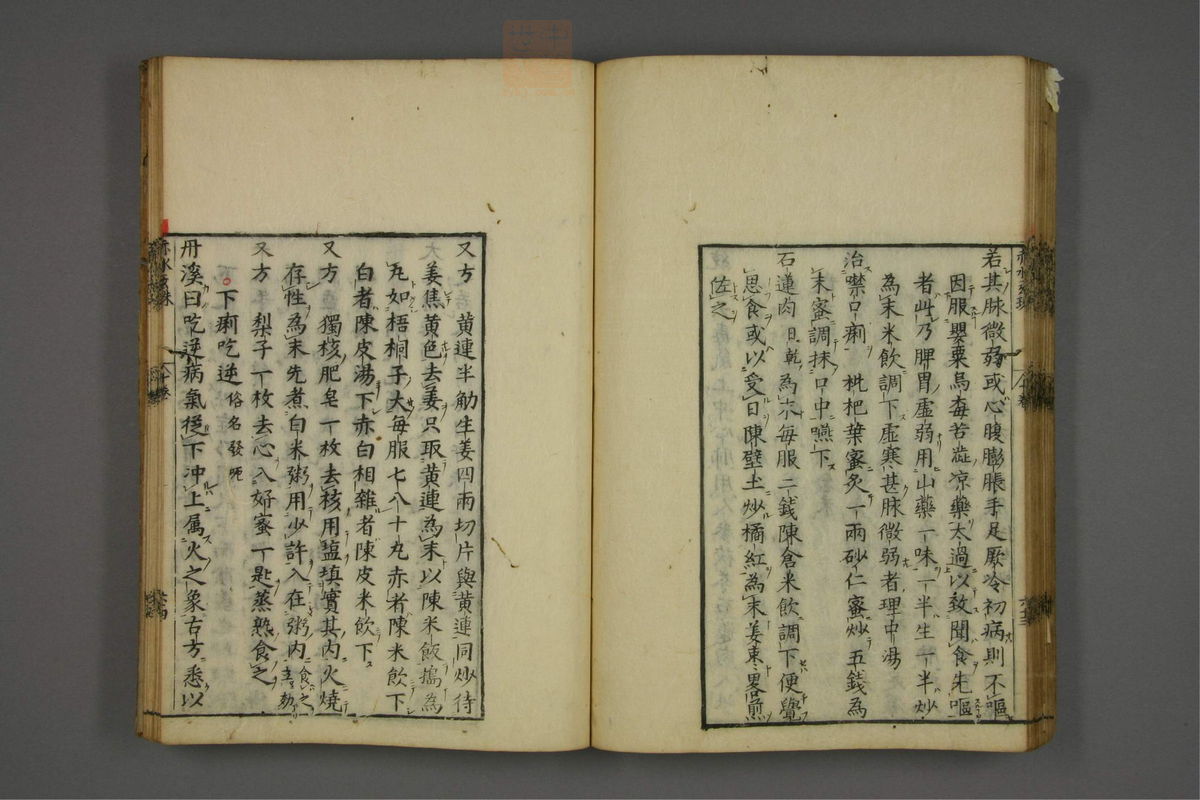 若其脉微弱或心腹膨脹手足厥冷初病則不嘔
因服罌粟烏梅苦澁凉藥太過以致聞食先嘔
者此乃脾胃虚弱用山藥一味一半生一半炒
為末米飲調下虚寒甚脉微弱者理中湯
治噤口痢 枇杷葉蜜炙一兩砂仁蜜炒五錢為
末蜜調抹口中嚥下
石蓮肉日乾為末毎服二錢陳倉米飲調下便覺
思食或以受日陳壁土炒橘紅為末姜棗畧煎
佐之
又方 黄連半觔生姜四兩切片與黄連同炒待
姜焦黄色去姜只取黄連為末以陳米飯搗為
丸如梧桐子大毎服七八十丸赤者陳米飲下
白者陳皮湯下赤白相雜者陳皮米飲下
又方 獨核肥皂一枚去核用塩填實其内火燒
存性為末先煮白米粥用少許入在粥内食之
又方 梨子一枚去心入好蜜一匙蒸熟食之
下痢吃逆俗名發呃
丹溪曰吃逆病氣從下冲上属火之象古方悉以